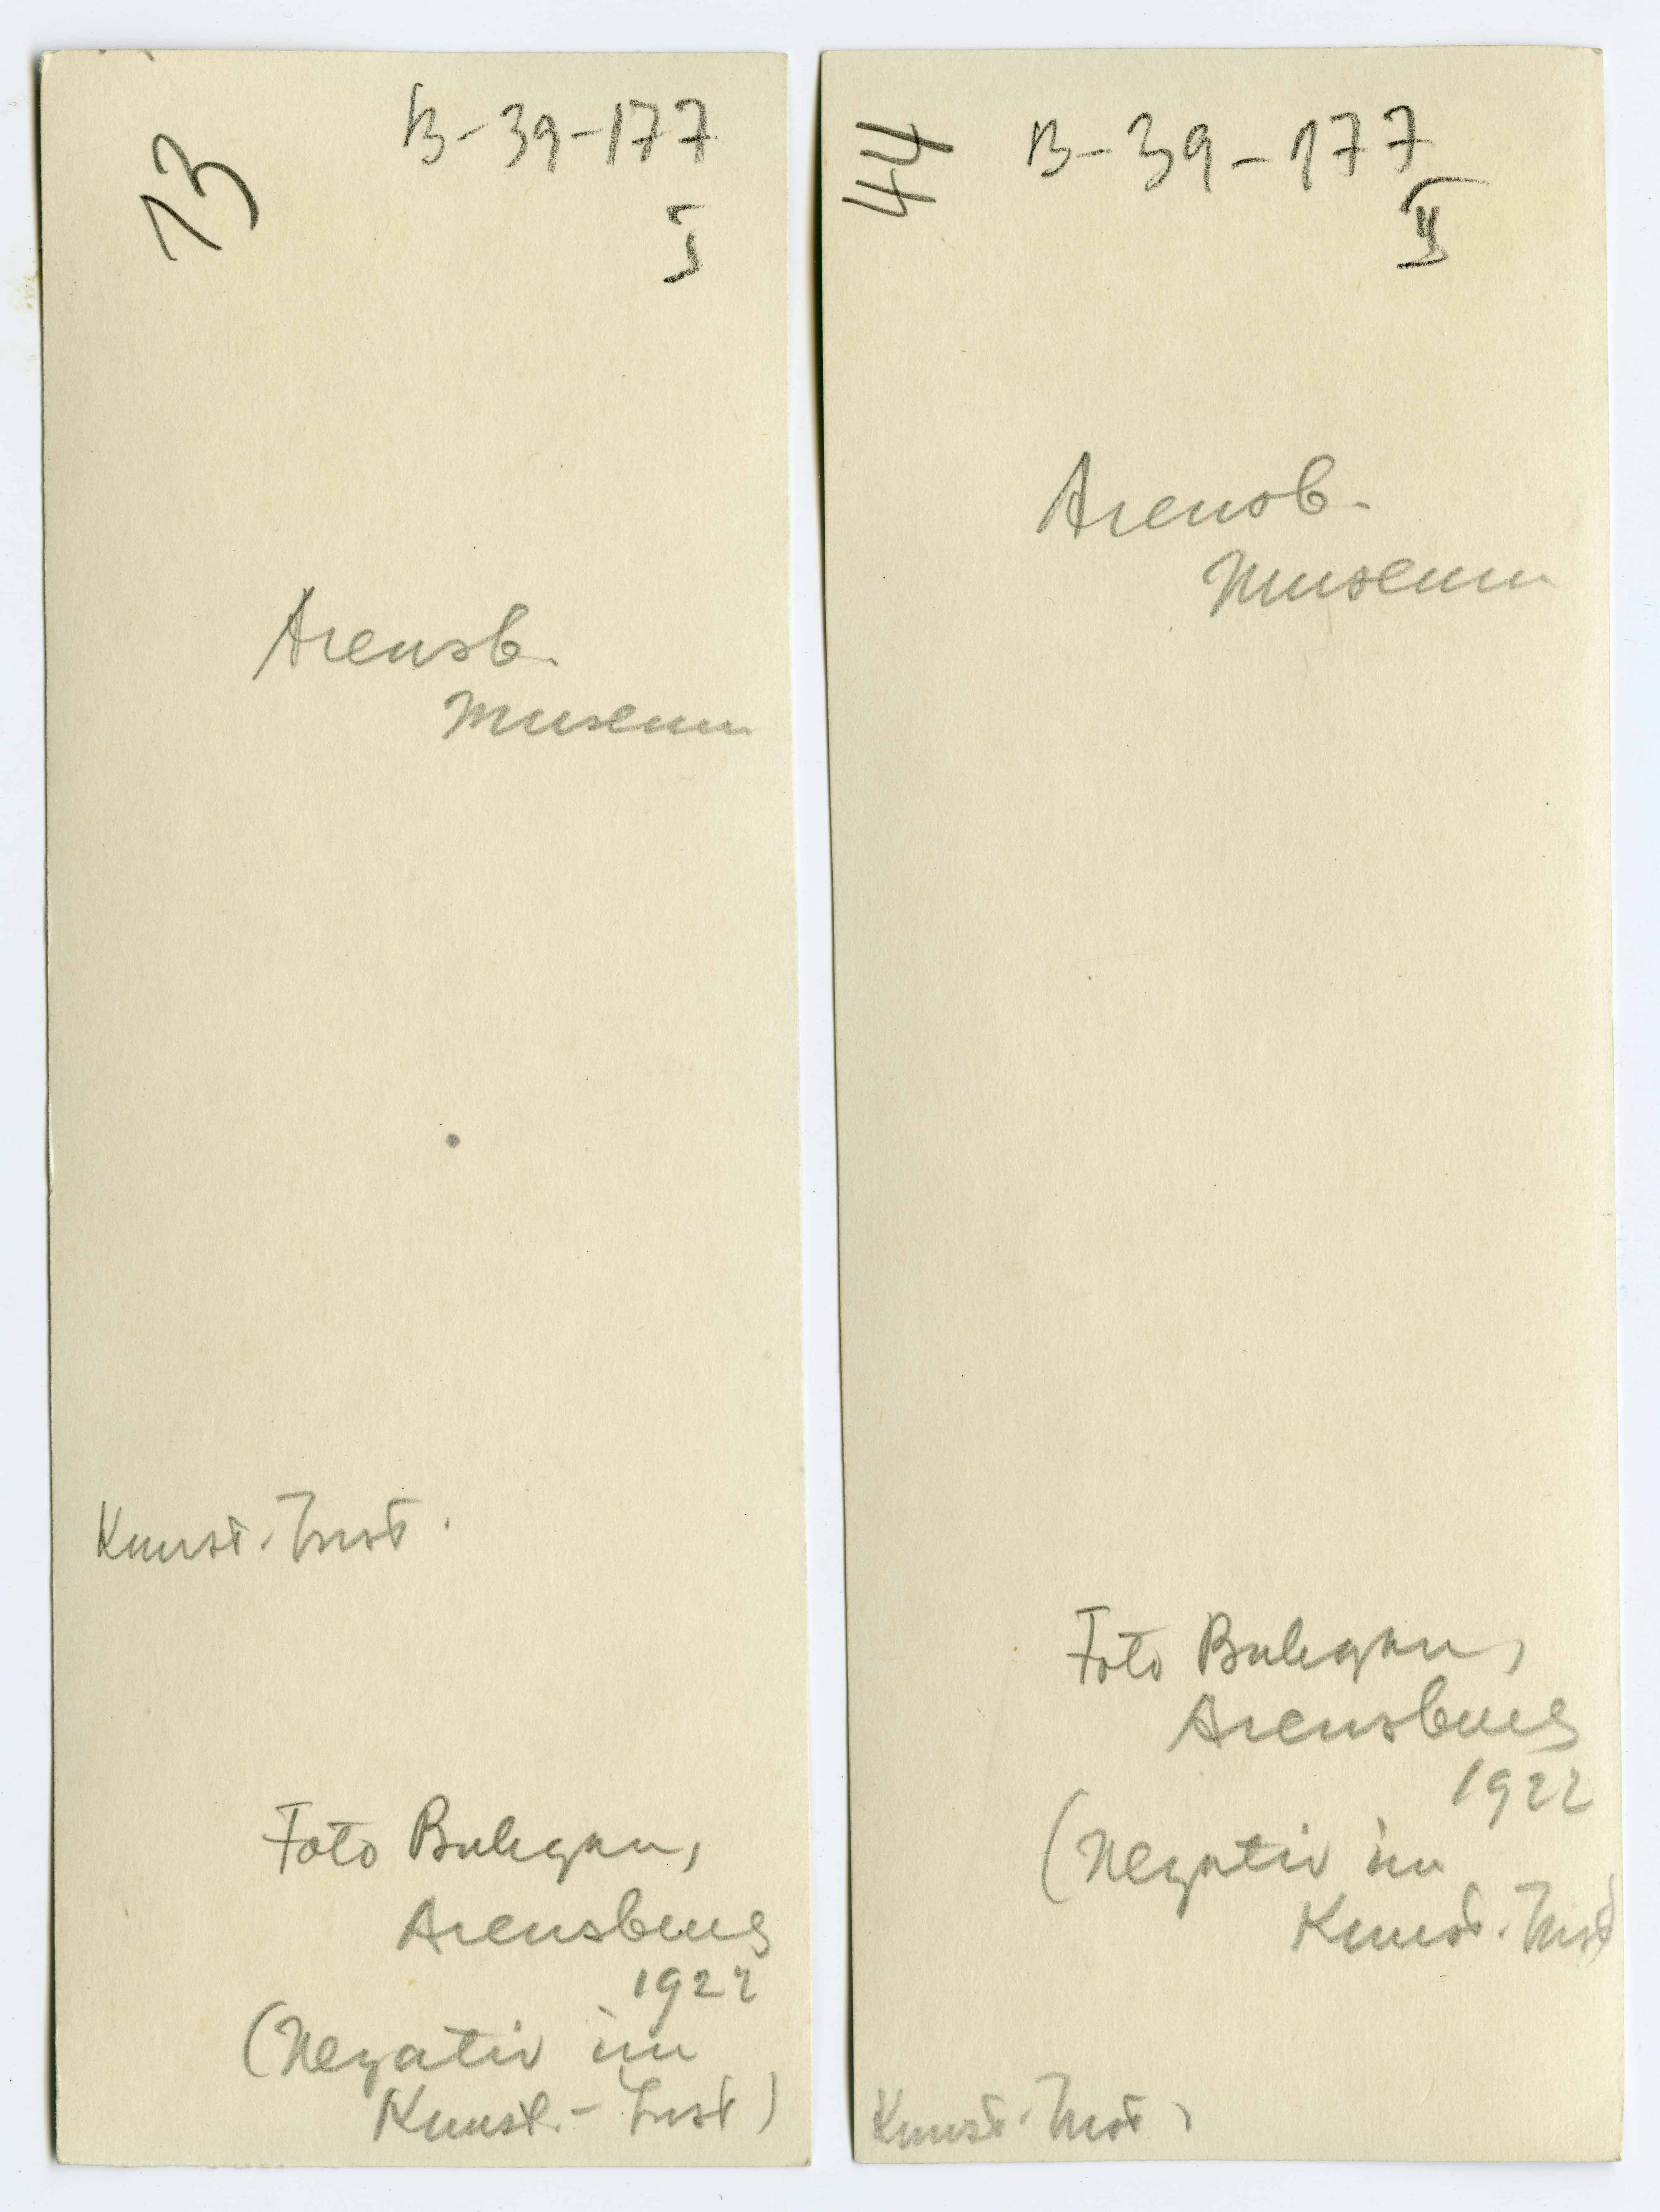 13
B-39-177
I
Arensb.
Museum
Kunst. Inst.
Foto
Arensburg
1922
(Negativ im
Kunst.- Inst)
44
B-39-177
II
Arensb.
Museum
Foto
Arensburg
1922
(Negativ im
Kunst. Inst
Kunst. Inst.